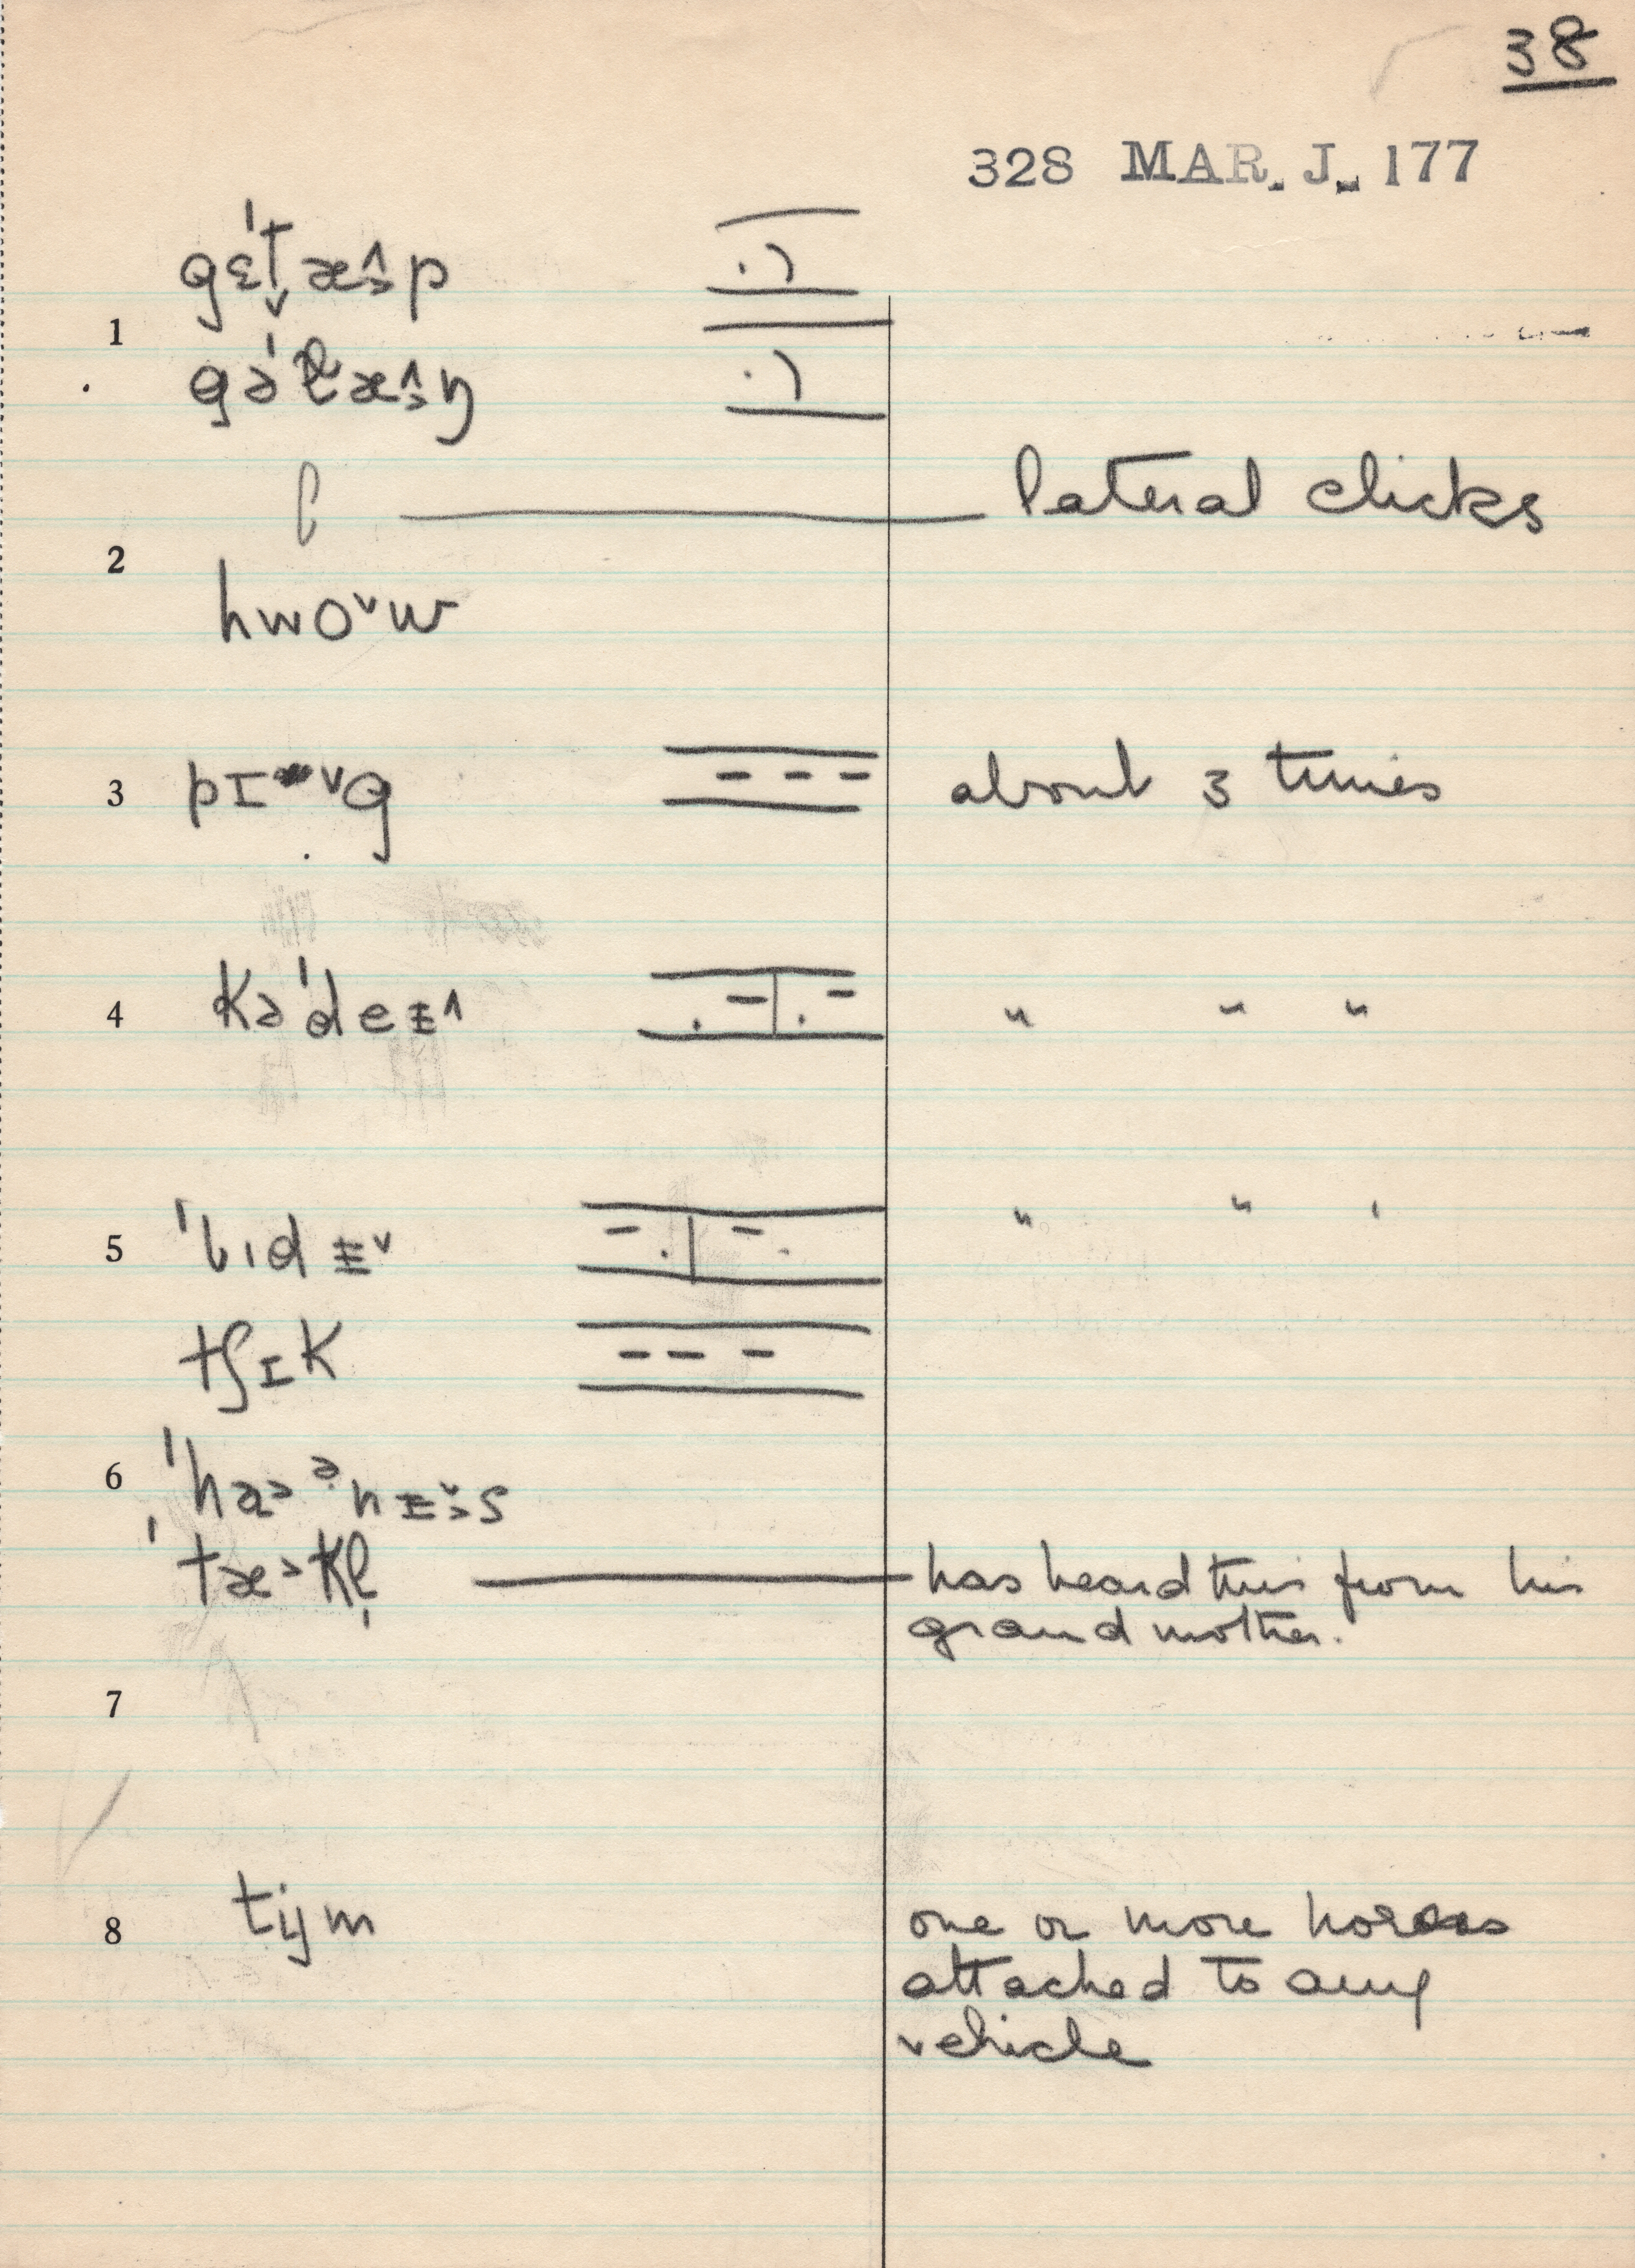 38
328 MAR. J. 177
gɛˈt̬æ˄˃p
1
gəˈt̬æ˄˃ŋ
lateral clicks
2
hwo˅w
3 pɪ˅g about 3 times
4 kəˈdeᵻ˄ " " "
5 ˈbɪdᵻ˅ " " "
tʃɪk
6 ˈha˃ᵊnᵻ˅˃s
ˈtæ˃kl̩ has heard this from his
grandmother.
7
8 tɪjm one or more horses
attached to any
vehicle